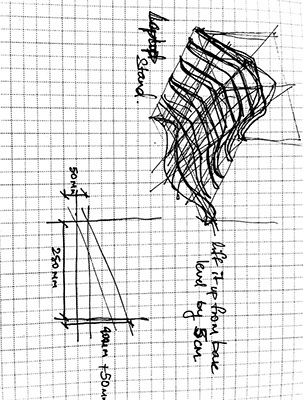 Laptop
Stand.
lift it up from base
level by 5 cm
50mm
280mm
+50mm